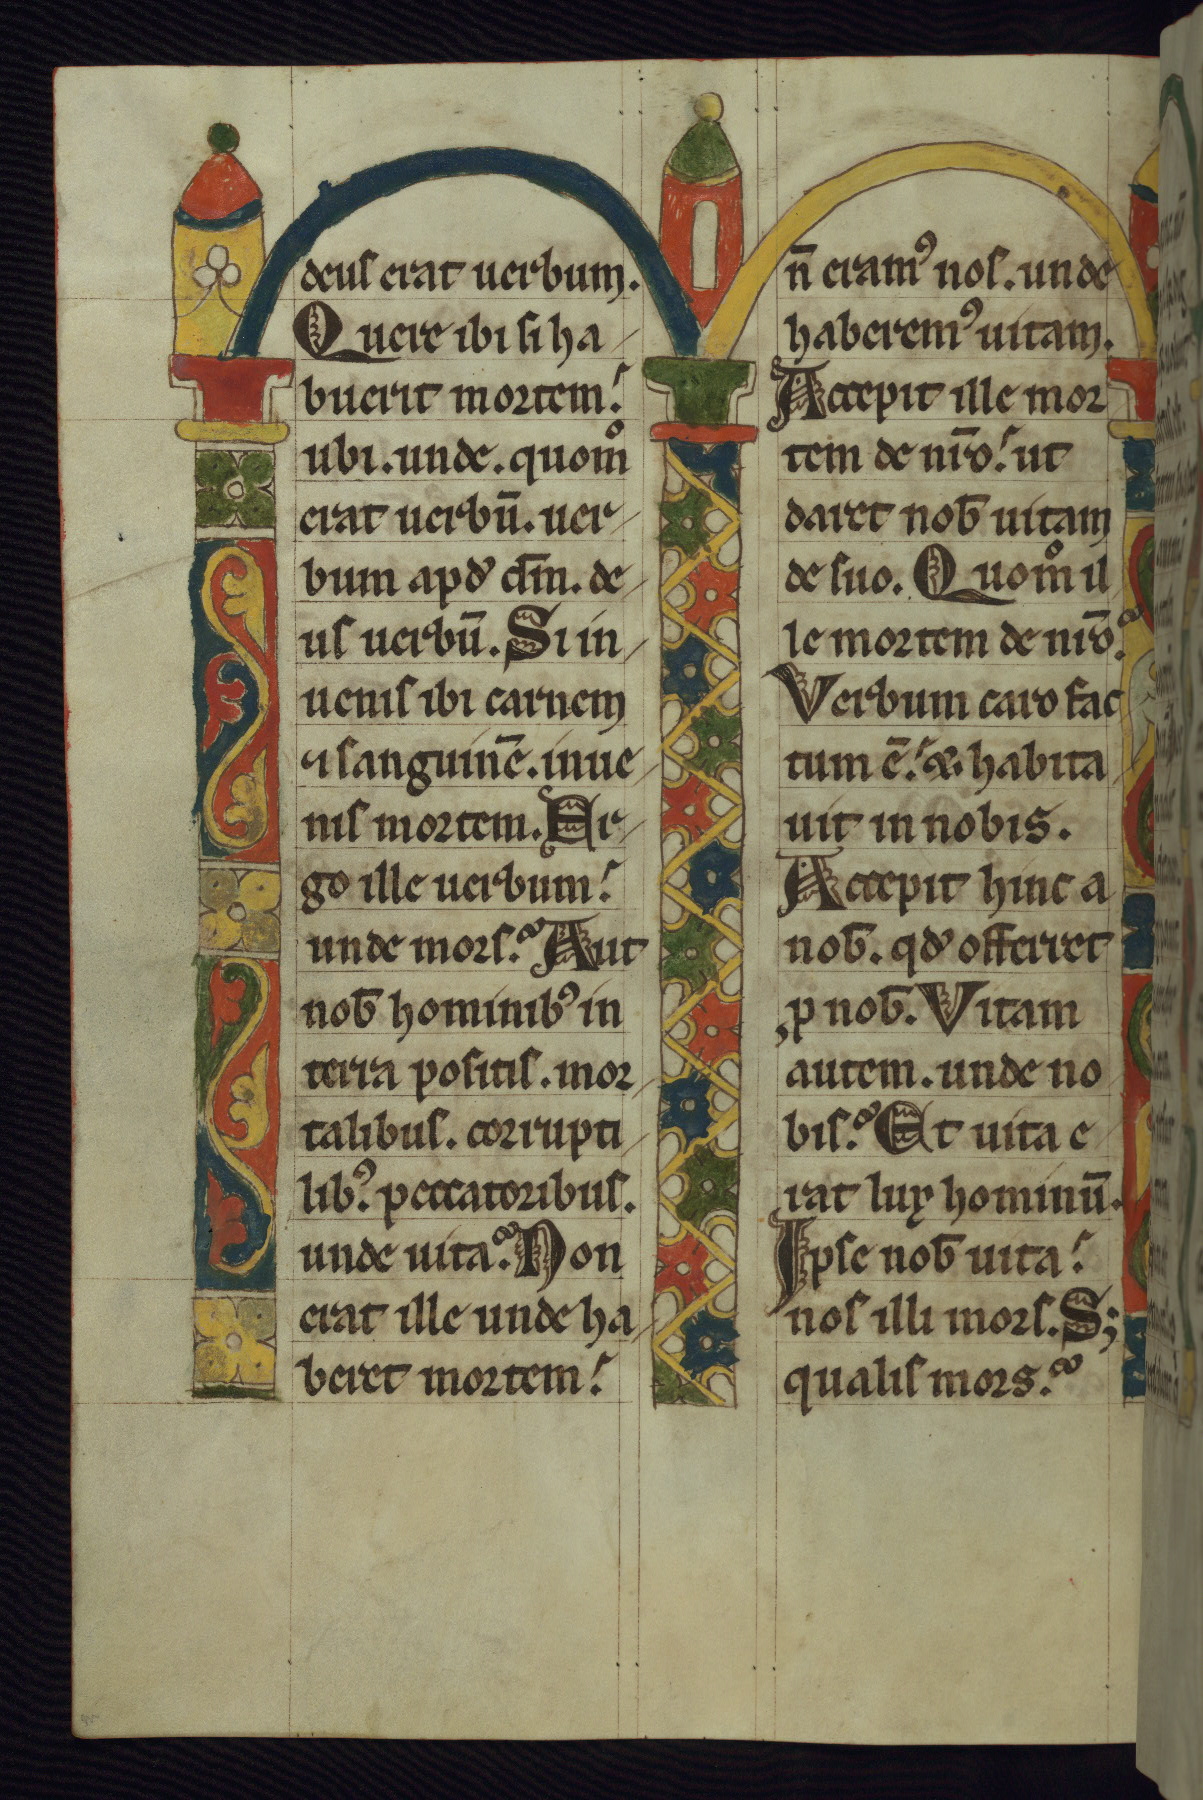 deus erat uerbum.
Quere ibi si ha
buerit mortem?
ubi. unde. quomͦ
erat uerbū. uer
bum apđ dm̄. de
us uerbū. Si in
uenis ibi carnem
⁊ sanguinē. inue
nis mortem. Er
go ille uerbum?
unde mors? Aut
nob̄ hominibꝰ in
terra positis. mor
talibus. corrupti
libꝰ. peccatoribus.
unde uita? Non
erat ille unde ha
beret mortem?
n̄ eramꝰ nos. unde
haberemꝰ uitam.
Accepit ille mor
tem de nr̄o? ut
daret nob̄ uitam
de suo. Quomͦ il
le mortem de nr̄o?
Verbum caro fac
tum ē? & habita
uit in nobis.
Accepit hinc a
nob̄. qđ offerret
ꝓ nob̄. Vitam
autem. unde no
bis? Et uita e
rat lux hominū.
Ipse nob̄ uita?
nos illi mors. S;
qualis mors?